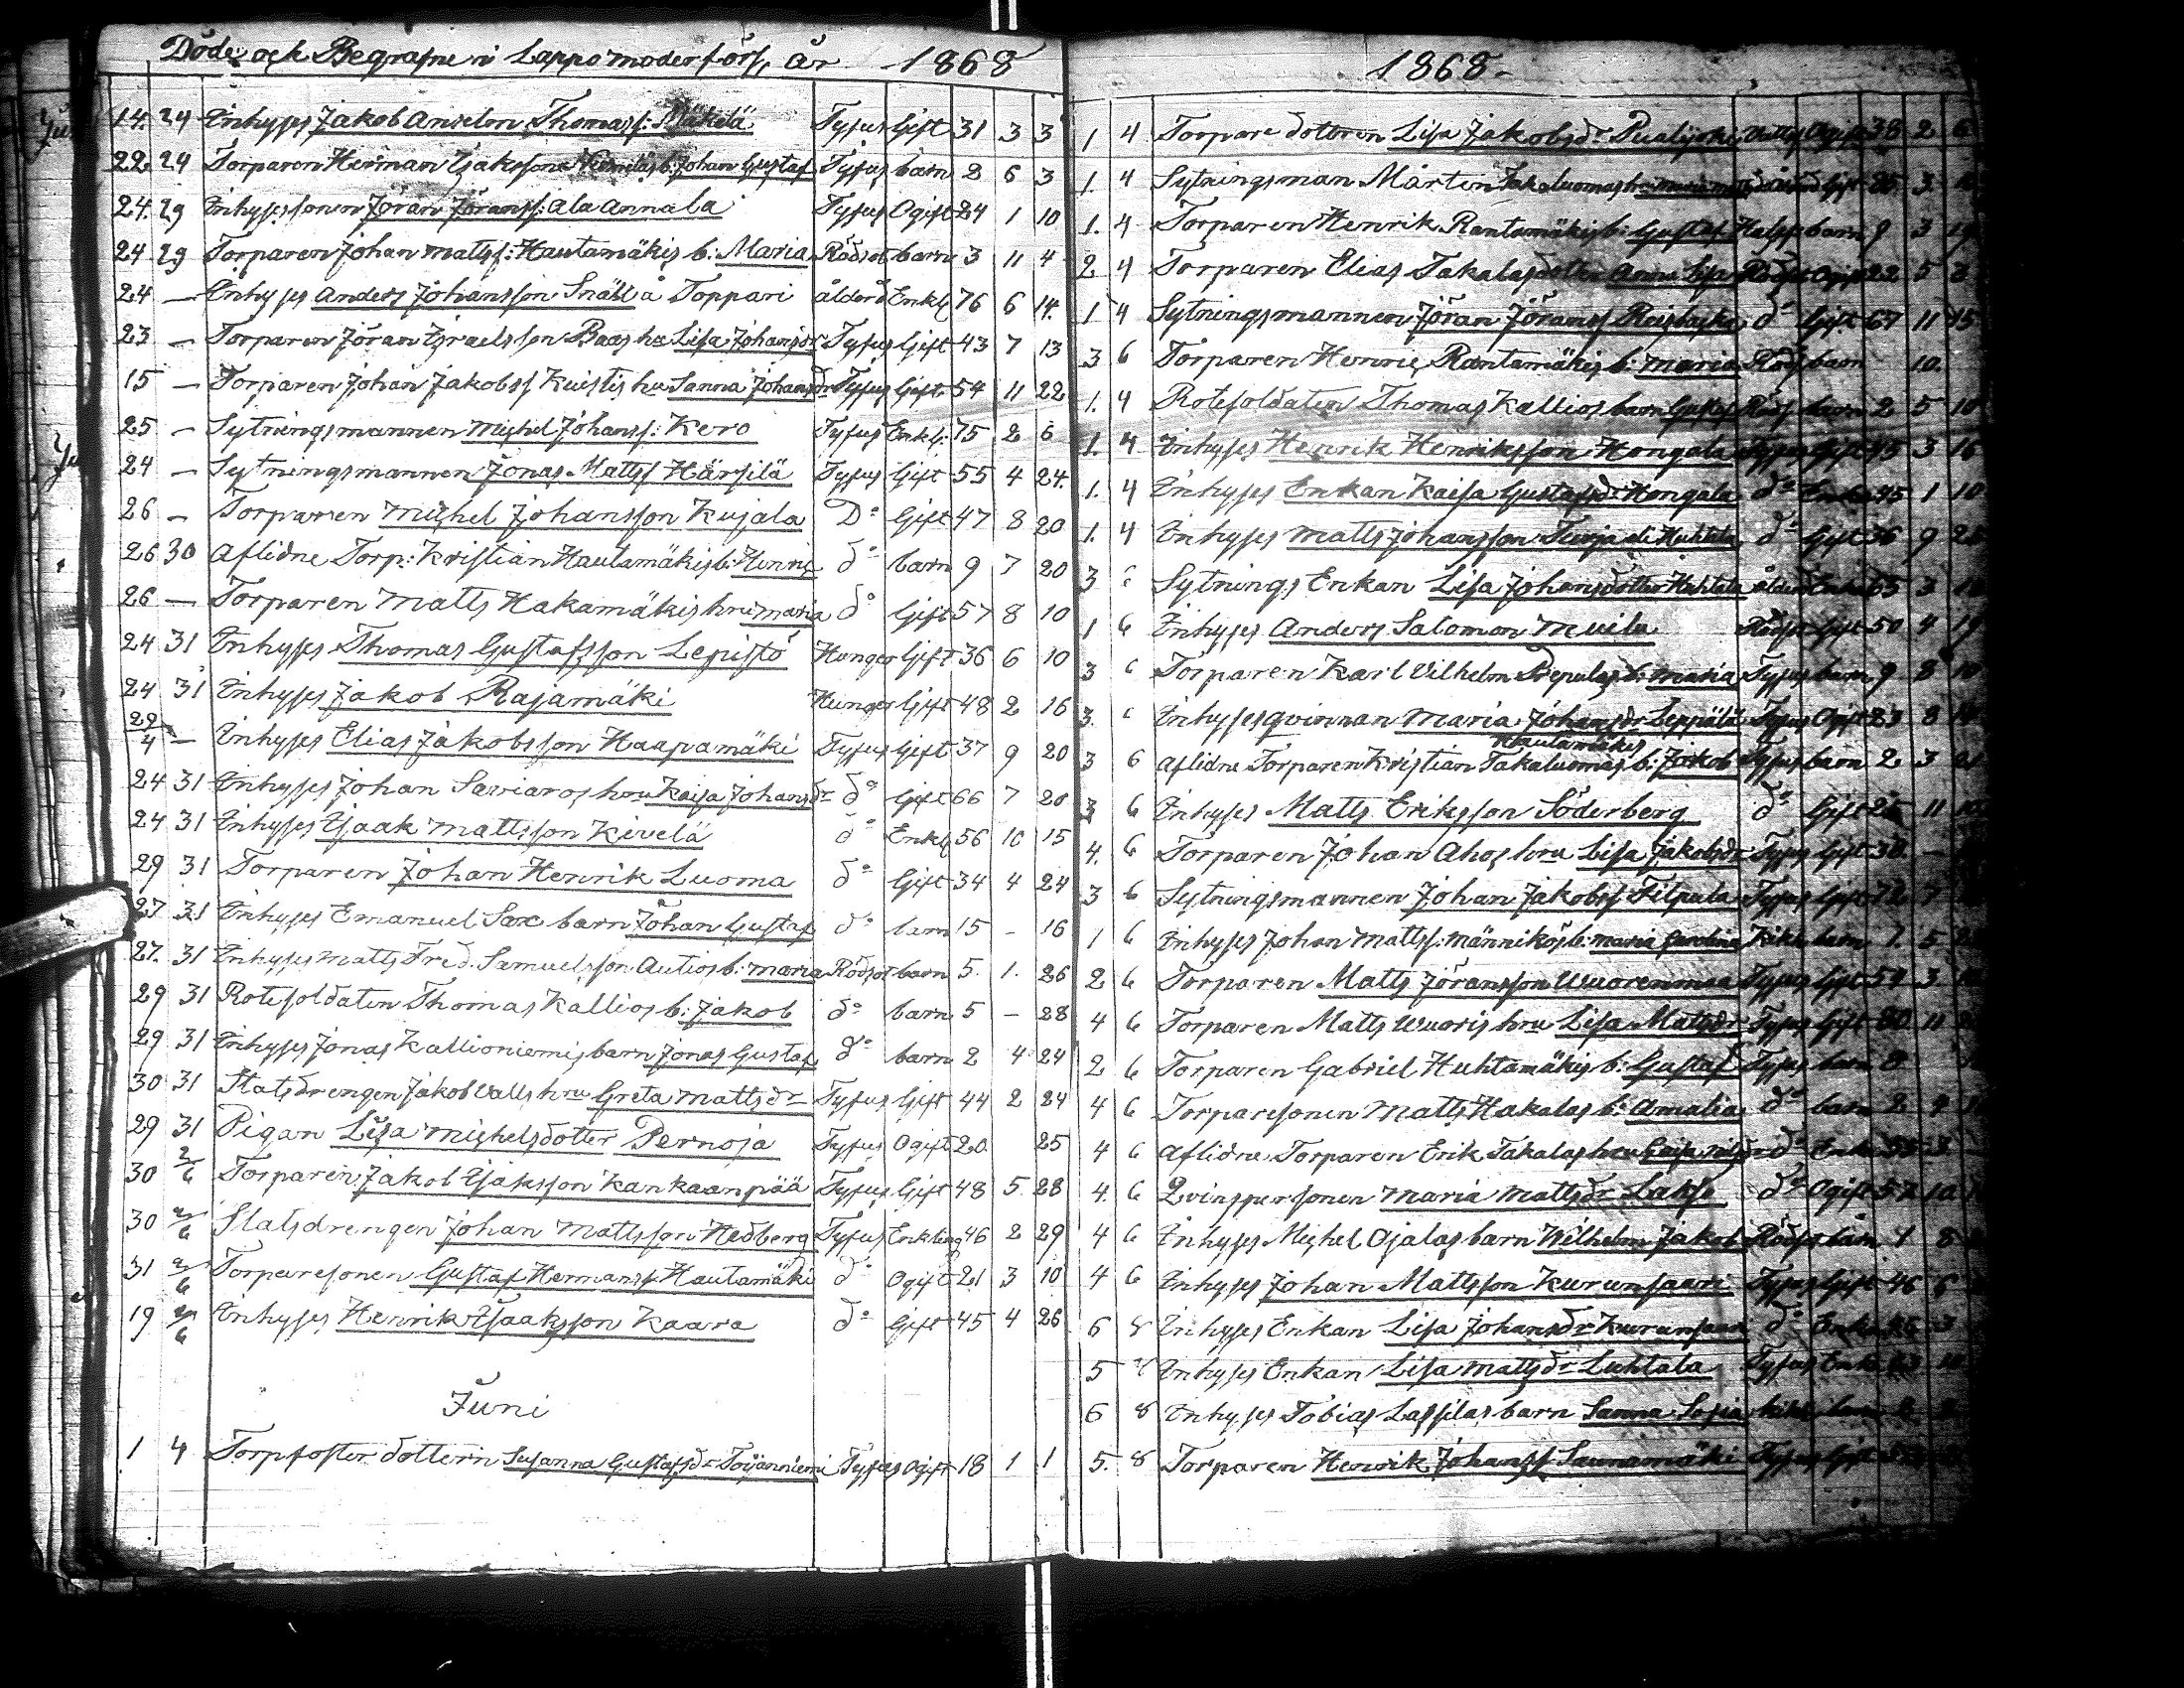 Döde och Begrafne i Lappo moderförs, år 1868
14. 24 Inhyses Jakob Anselm Thomass: Mäkelä Tyfus Gift 31 3 3
22 24 Torparen Herman Isakssons b: Johan Gustaf Tyfus barn 2 6 3
24. 29 Inhysessonen Jöran Jöranss: Ala Annala Tyfus Ogift 24 1 10
24 29 Torparen Johan Mattss: Hautamäkis b: Maria Rödsot barn 3 11 4
24 — Inhyses Anders Johansson Snäll å Toppari ålderd Enkl 76 6 14.
23 — Torparen Jöran Israelsson Raas hu Lisa Johansdr Tyfus Gift 43 7 13
15 — Torparen Johan Jakobss Kuistis hu Sanna Johansdr Tyfus Gift 54 11 22
25 — Sytningsmannen Michel Johanss: Kero Tyfus Enkl: 75 2 6
24 — Sytningsmannen Jonas Mattss Härsilä Tyfus Gift 55 4 24.
26 — Torparen Michel Johansson Kujala Do Gift 47 8 20
26 30 Aflidne Torp: Kristian Hautamäkis b: Henric do barn 9 7 20
26 — Torparen Matts Hakamäkis hru Maria do Gift 57 8 10
24 31 Inhyses Thomas Gustafsson Lepistö Hunger Gift 36 6 10
24 31 Inhyses Jakob Rajamäki Hunger Gift 48 2 16
29/4 — Inhyses Elias Jakobsson Haapamäki Tyfus Gift 37 9 20
24 31 Inhyses Johan Saviaros hru Kaisa Johansdr do Gift 66 7 20
24 31 Inhyses Isaak Mattsson Kivelä do Enkl 56 10 15
29 31 Torparen Johan Henrik Luoma do Gift 34 4 24
27 31 Inhyses Emanuel Sax barn Johan Gustaf do barn 15 - 16
27. 31 Inhyses Matts Fred. Samuelsson Autios b: Maria Rödsot barn 5. 1. 26
29 31 Rotesoldaten Thomas Kallios b: Jakob do barn 5 — 28
29 31 Inhyses Jonas Kallioniemis barn Jonas Gustaf do barn 2 4 24
30 31 Statsdrengen Jakob Walls hru Greta Mattsdr Tyfus Gift 44 2 24
29 31 Pigan Lisa Michelsdotter Pernoja Tyfus Ogift 20 25
30 2/6 Torparen Jakob Isaksson Kankaanpää Tyfus Gift 48 5 28
30 2/6 Statsdrengen Johan Mattsson Hedberg Tyfus Enkling 46 2 29
31 2/6 Torparesonen Gustaf Hermanss Hautamäki do Ogift 21 3 10
19 2/6 Inhyses Henrik Isaaksson Kaara do Gift 45 4 26
Juni
1 4 Torpfosterdottern Susanna Gustafsdr Töyänniemi Tyfus Ogift 18 1 1
1868
1 4 Torpare dottren Lisa Jakobsdr Ogift 38 2 6
1. 4 Sytningsman Martin Jakaluomas Gift 3
1. 4 Torparen Henrik Rantamäkis b: Gustaf Halss barn 9 3 19
2 4 Torparen Elias Takalas dotter Anna Lisa Rödsot Ogift 22 5
1 4 Sytningsmannen Jöran Jöranss do Gift 67 11 15
3 6 Torparen Henric Rantamäkis b: Maria Röds barn 10.
1. 4 Rotesoldaten Thomas Kallios barn Gustaf Röds barn 2 5 10
1. 4 Inhyses Henrik Henriksson Hongala Tyfus Gift 45 3 16
1. 4 Inhyses Enkan Kaisa Gustafsdr Hongala do Enka 45 1 10
1. 4 Inhyses Matts Johansson Huhtala do Gift 36 9
3 6 Sytnings Enkan Lisa Johansdotter Huhtala ålderd Enka 65 3
1 6 Inhyses Anders Salomon Meuila Rödsot Gift 50 4 19
3 6 Torparen Karl Vilhelm b: Maria Tyfus barn 9 8 10
3. 6 Inhyses qvinnan Maria Johansdr Leppälä Tyfus Ogift 23 8
Hautamäkis
3 6 Aflidne Torparen Kristian Takaluomas b: Jakob Tyfus barn 2 3 21
3 6 Inhyses Matts Eriksson Söderberg do Gift 11
4. 6 Torparen Johan Ahos hru Lisa Jakobsdr Tyfus Gift 38 —
3 6 Sytningsmannen Johan Jakobss Filpula Tyfus Gift 72 7
1 6 Inhyses Johan Mattss: Männikös b: Maria Carolina Kikh barn 1 5
2 6 Torparen Matts Jöransson Wuorenmaa Tyfus Gift 59 3
4 6 Torparen Matts Wuoris hru Lisa Matsdr Tyfus Gift 11
2 6 Torparen Gabriel Huhtamäkis b: Gustaf Tyfus barn 8
4 6 Torparesonen Matts Hakalas b: Amalia do barn 2 9
4 6 Aflidne Torparen Erik Takalas hru do Enka 3
4. 6 Qvinspersonen Maria Mattsdr do Ogift 57 10
4 6 Inhyses Michel Ojalas barn Wilhelm Jakob Rödsot barn 1 8
4 6 Inhyses Johan Mattsson Kurunsaari Tyfus Gift 46 6
6 8 Inhyses Enkan Lisa Johansdr Kurunsaari do Enka 3
5 8 Inhyses Enkan Lisa Mattsdr Luhtala Tyfus Enka
6 8 Inhyses Tobias Lassilas barn Sanna Sofia kikh barn
5. 8 Torparen Henrik Johanss Saunamäki Tyfus Gift